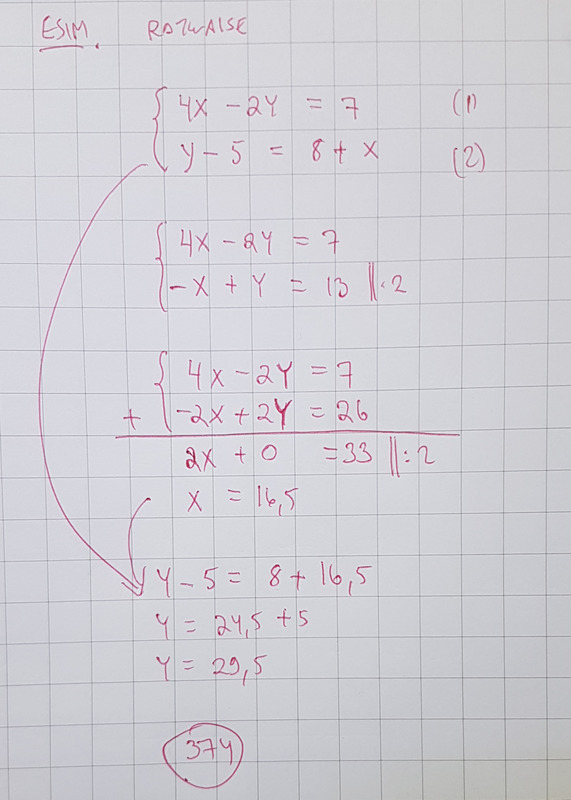 ESIM. RATKAISE
4x - 2y = 7 (1)
y - 5 = 8 + x (2)
4x - 2y = 7
-x + y = 13 ||·2
4x - 2y = 7
+ -2x + 2y = 26
2x + 0 = 33 ||:2
x = 16,5
y - 5 = 8 + 16,5
y = 24,5 + 5
y = 29,5
374